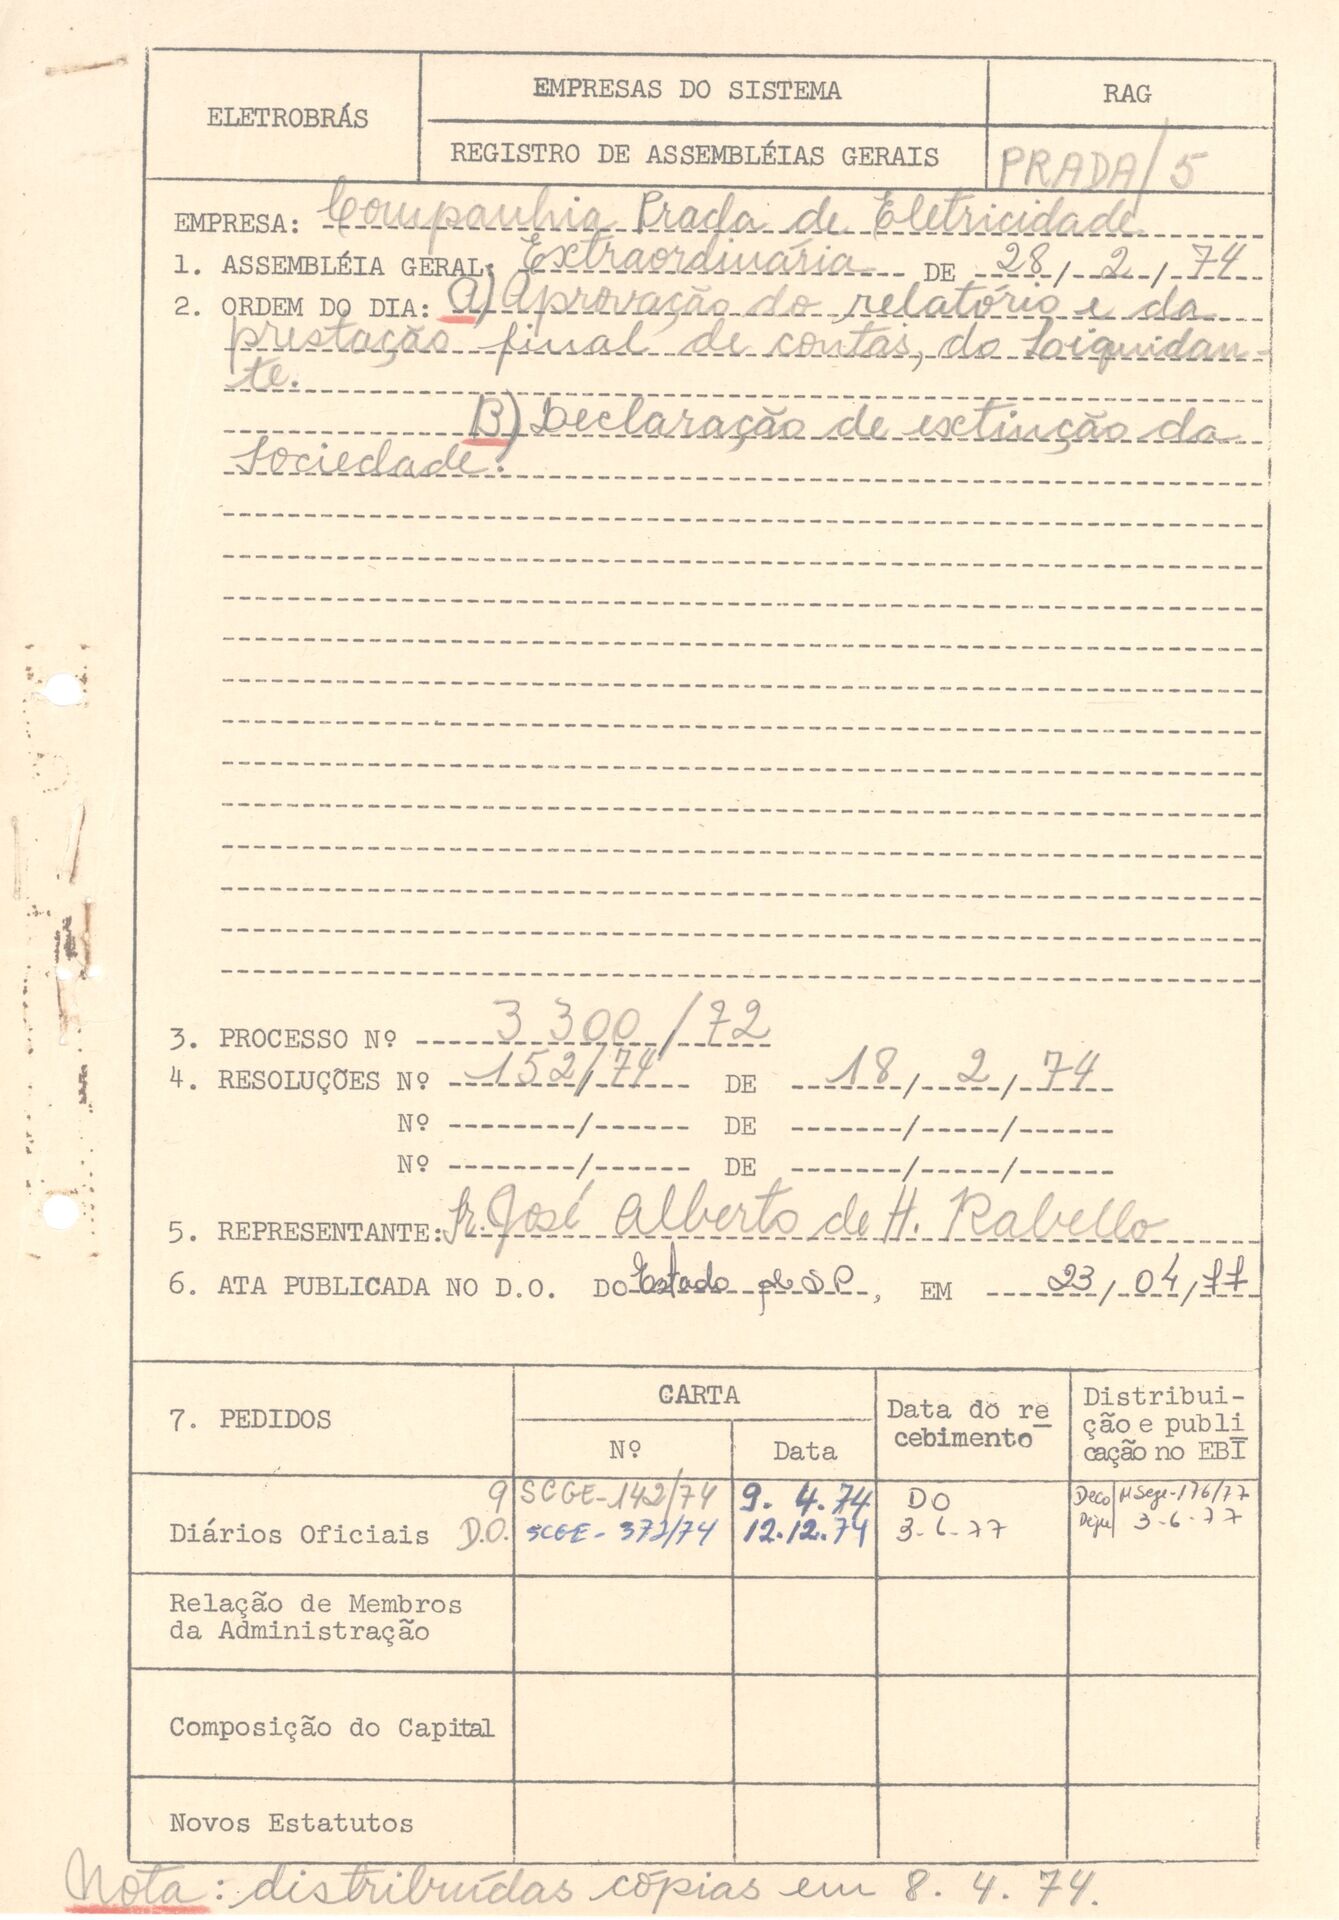 ELETROBRÁS
EMPRESAS DO SISTEMA
RAG
REGISTRO DE ASSEMBLÉIAS GERAIS
PRADA/5
EMPRESA: Companhia Prada de Eletricidade
1. ASSEMBLÉIA GERAL: Extraordinária DE 28/2/74
2. ORDEM DO DIA: A) Aprovação do relatório e da
prestação final de contas, do Liquidan-
te.
B) Declaração de extinção da
Sociedade.
3. PROCESSO Nº 3300/72
4. RESOLUÇÕES Nº 152/74 DE 18/2/74
Nº / DE / /
Nº / DE / /
5. REPRESENTANTE: Sr. José Alberto de H. Rabello
6. ATA PUBLICADA NO D.O. DO Estado de S.P., EM 23/04/77
7. PEDIDOS
CARTA
Nº
Data
Data do re
cebimento
Distribui-
ção e publi
cação no EBI
9 SCGE-142/74 9.4.74 DO
Diários Oficiais D.O. SCGE-372/74 12.12.74 3-6-77
176/77
3-6-77
Relação de Membros
da Administração
Composição do Capital
Novos Estatutos
Nota: distribuídas cópias em 8.4.74.